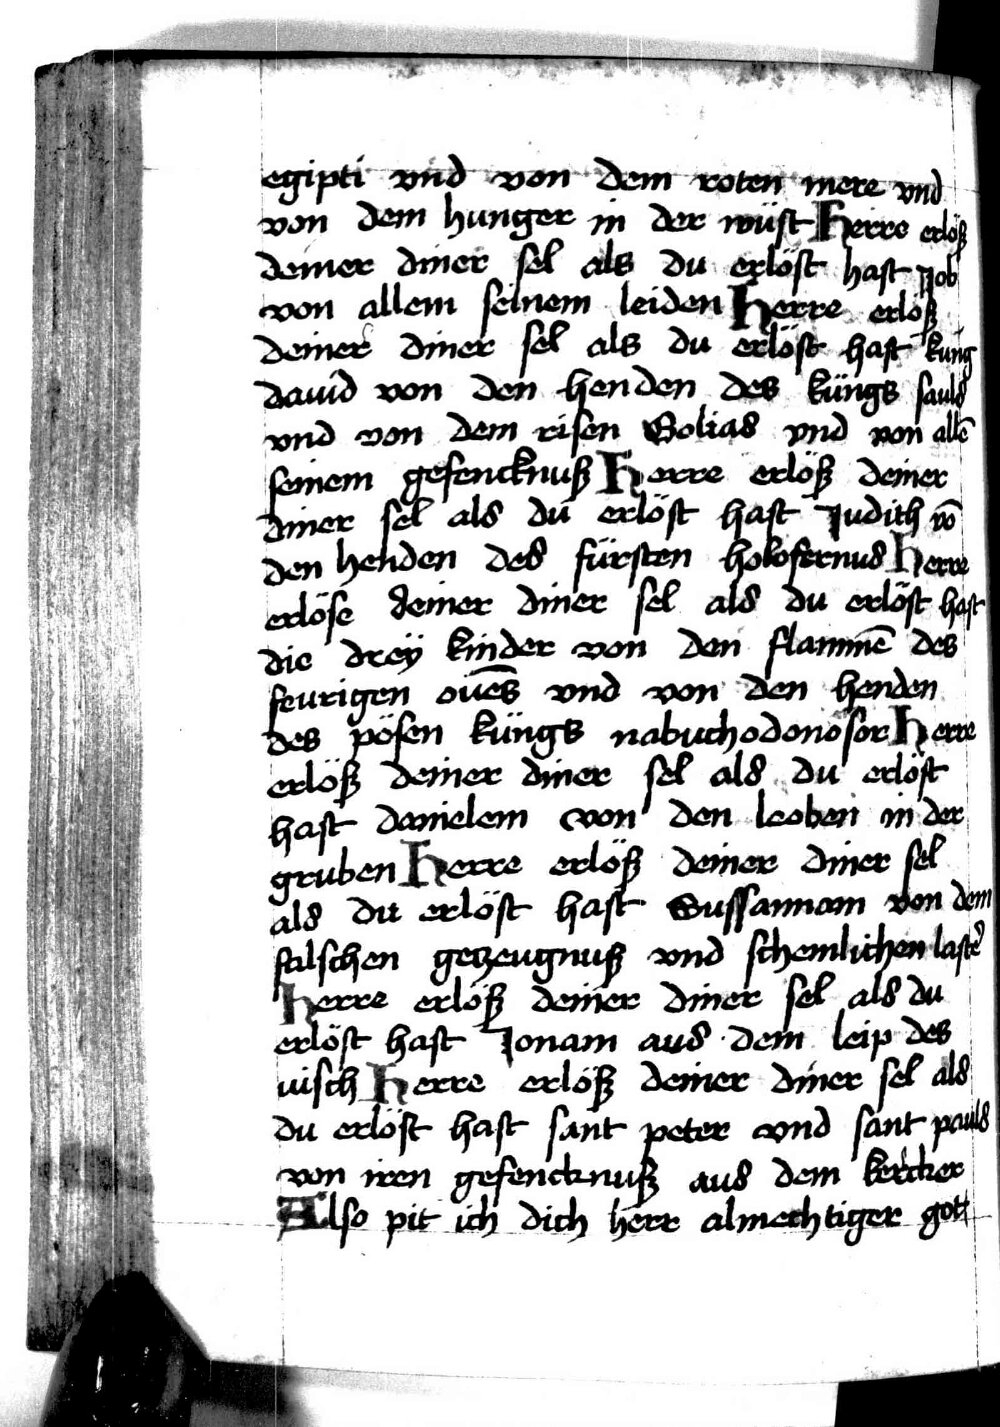 egipti vnd von dem roten mere vnd
von dem hunger in der wüst Herre erlöß
deiner diner sel als du erlöst hast Job
von allem seinem leiden Herre erlöß
deiner diner sel als du erlöst hast küng
dauid von den henden des küngs sauls
vnd von dem risen Golias vnd von allē
seinem gefencknuß Herre erlöß deiner
diner sel als du erlöst hast Judith vō
den henden des fürsten holofernus Herre
erlöse deiner diner sel als du erlöst hast
die drey kinder von den flammē des
feurigen ouēs vnd von den henden
des pösen küngs nabuchodonosor Herre
erlöß deiner diner sel als du erlöst
hast danielem von den leoben in der
gruben Herre erlöß deiner diner sel
als du erlöst hast Sussannam von dem
falschen getzeugnuß vnd schemlichen last̾
Herre erlöß deiner diner sel als du
erlöst hast Jonam aus dem leip des
uisch Herre erlöß deiner diner sel als
du erlöst hast sant peter vnd sant pauls
von iren gefencknuß aus dem kercker
Also pit ich dich herr almechtiger gott